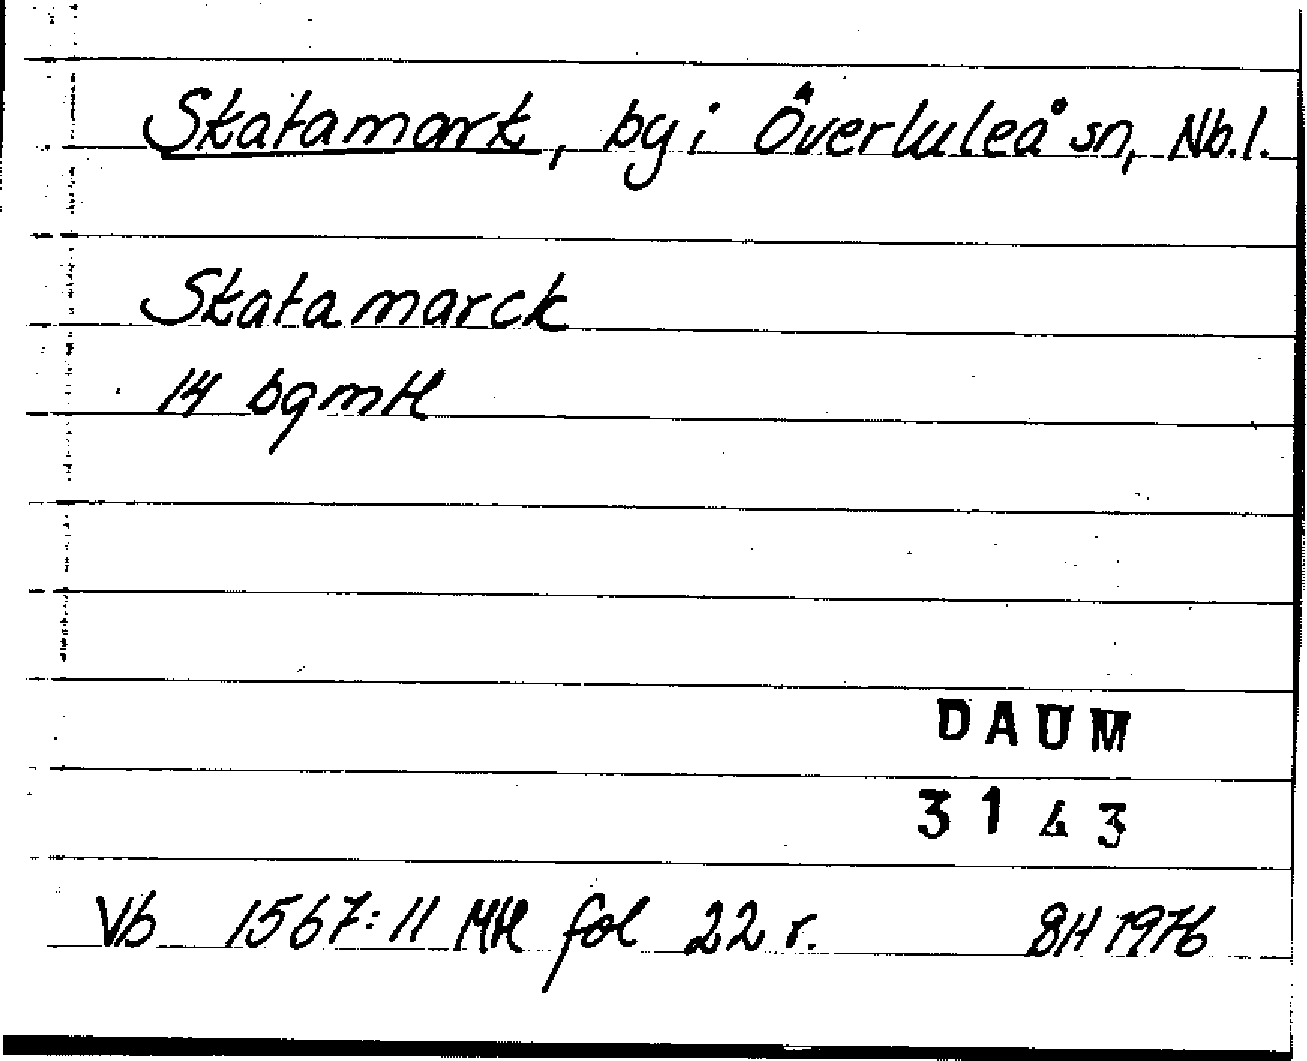 Skatamark, by i Överluleå sn, Nb.l.
Skatamarck
14 bgmtl
DAUM
3143
Vb 1567:11 Mtl fol 22 r. BH 1976